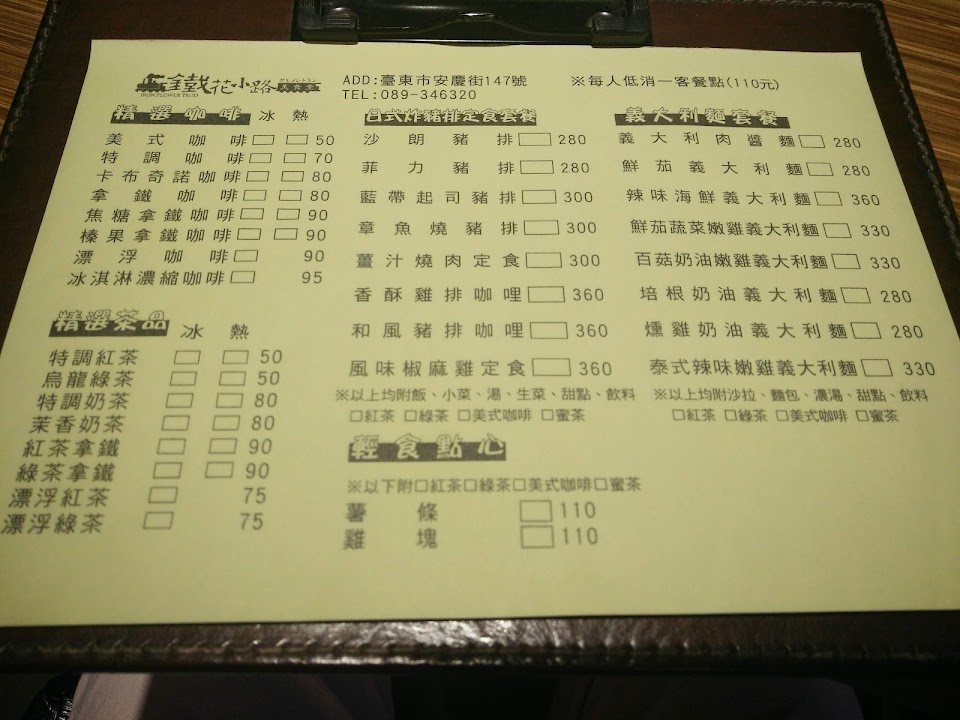 鐵花小路
IRON FLOWER TROD
ADD:臺東市安慶街147號
TEL:089-346320
※每人低消一客餐點(110元)
精選咖啡 冰 熱
美式咖啡 50
特調咖啡 70
卡布奇諾咖啡 80
拿鐵咖啡 80
焦糖拿鐵咖啡 90
榛果拿鐵咖啡 90
漂浮咖啡 90
冰淇淋濃縮咖啡 95
精選茶品 冰 熱
特調紅茶 50
烏龍綠茶 50
特調奶茶 80
茉香奶茶 80
紅茶拿鐵 90
綠茶拿鐵 90
漂浮紅茶 75
漂浮綠茶 75
日式炸豬排定食套餐
沙朗豬排 280
菲力豬排 280
藍帶起司豬排 300
章魚燒豬排 300
薑汁燒肉定食 300
香酥雞排咖哩 360
和風豬排咖哩 360
風味椒麻雞定食 360
※以上均附飯、小菜、湯、生菜、甜點、飲料
□紅茶 □綠茶 □美式咖啡 □蜜茶
輕食點心
※以下附□紅茶□綠茶□美式咖啡□蜜茶
薯條 110
雞塊 110
義大利麵套餐
義大利肉醬麵 280
鮮茄義大利麵 280
辣味海鮮義大利麵 360
鮮茄蔬菜嫩雞義大利麵 330
百菇奶油嫩雞義大利麵 330
培根奶油義大利麵 280
燻雞奶油義大利麵 280
泰式辣味嫩雞義大利麵 330
※以上均附沙拉、麵包、濃湯、甜點、飲料
□紅茶 □綠茶 □美式咖啡 □蜜茶